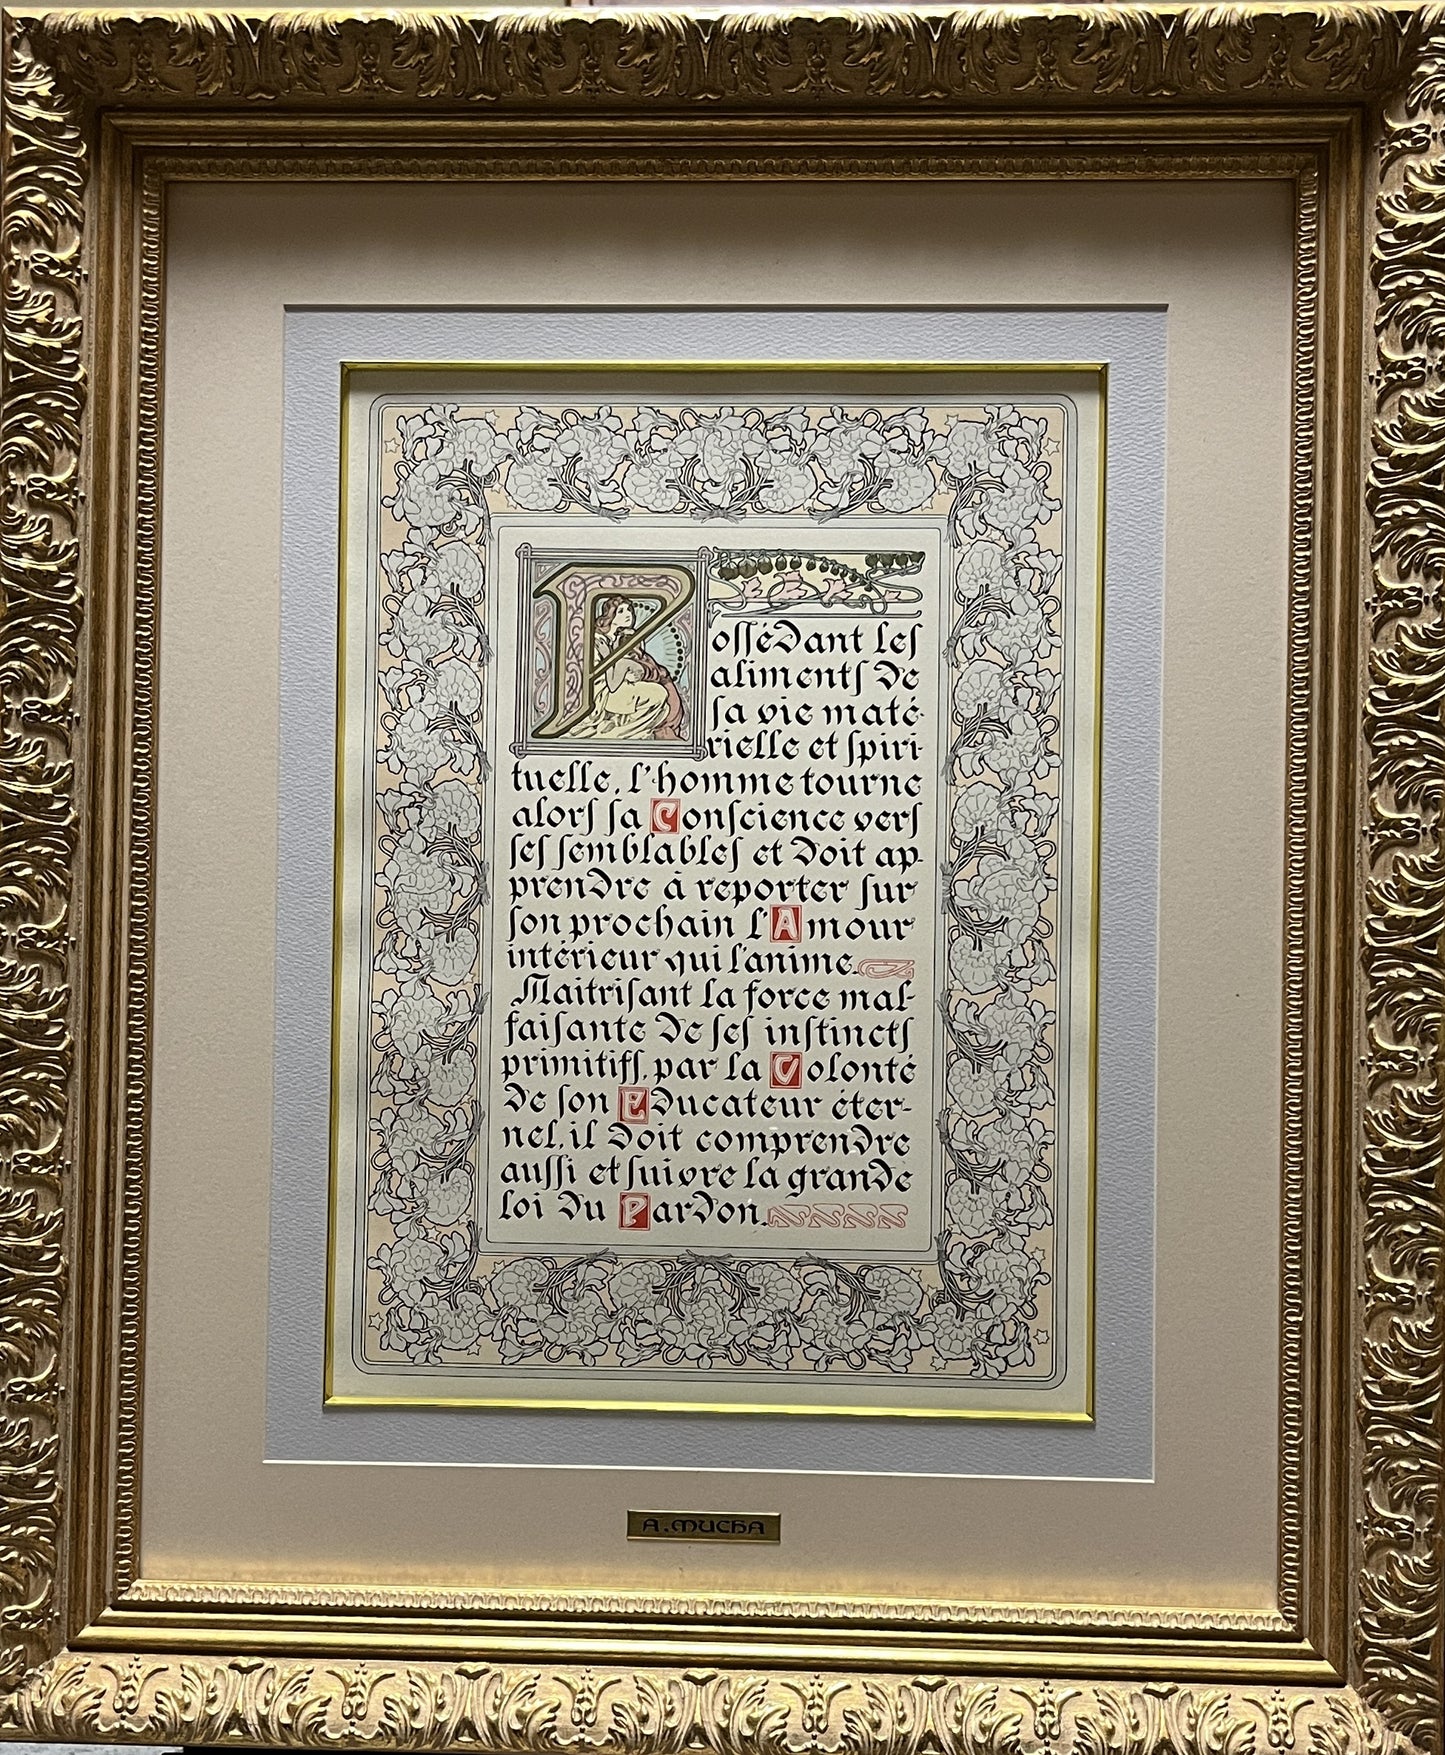 Possédant les
aliments de
sa vie maté-
rielle et spiri-
tuelle, l'homme tourne
alors sa Conscience vers
ses semblables et doit ap-
prendre à reporter sur
son prochain l'Amour
intérieur qui l'anime.
Maitrisant la force mal-
faisante de ses instincts
primitifs, par la Volonté
de son Educateur éter-
nel, il doit comprendre
aussi et suivre la grande
loi du Pardon.
A. MUCHA